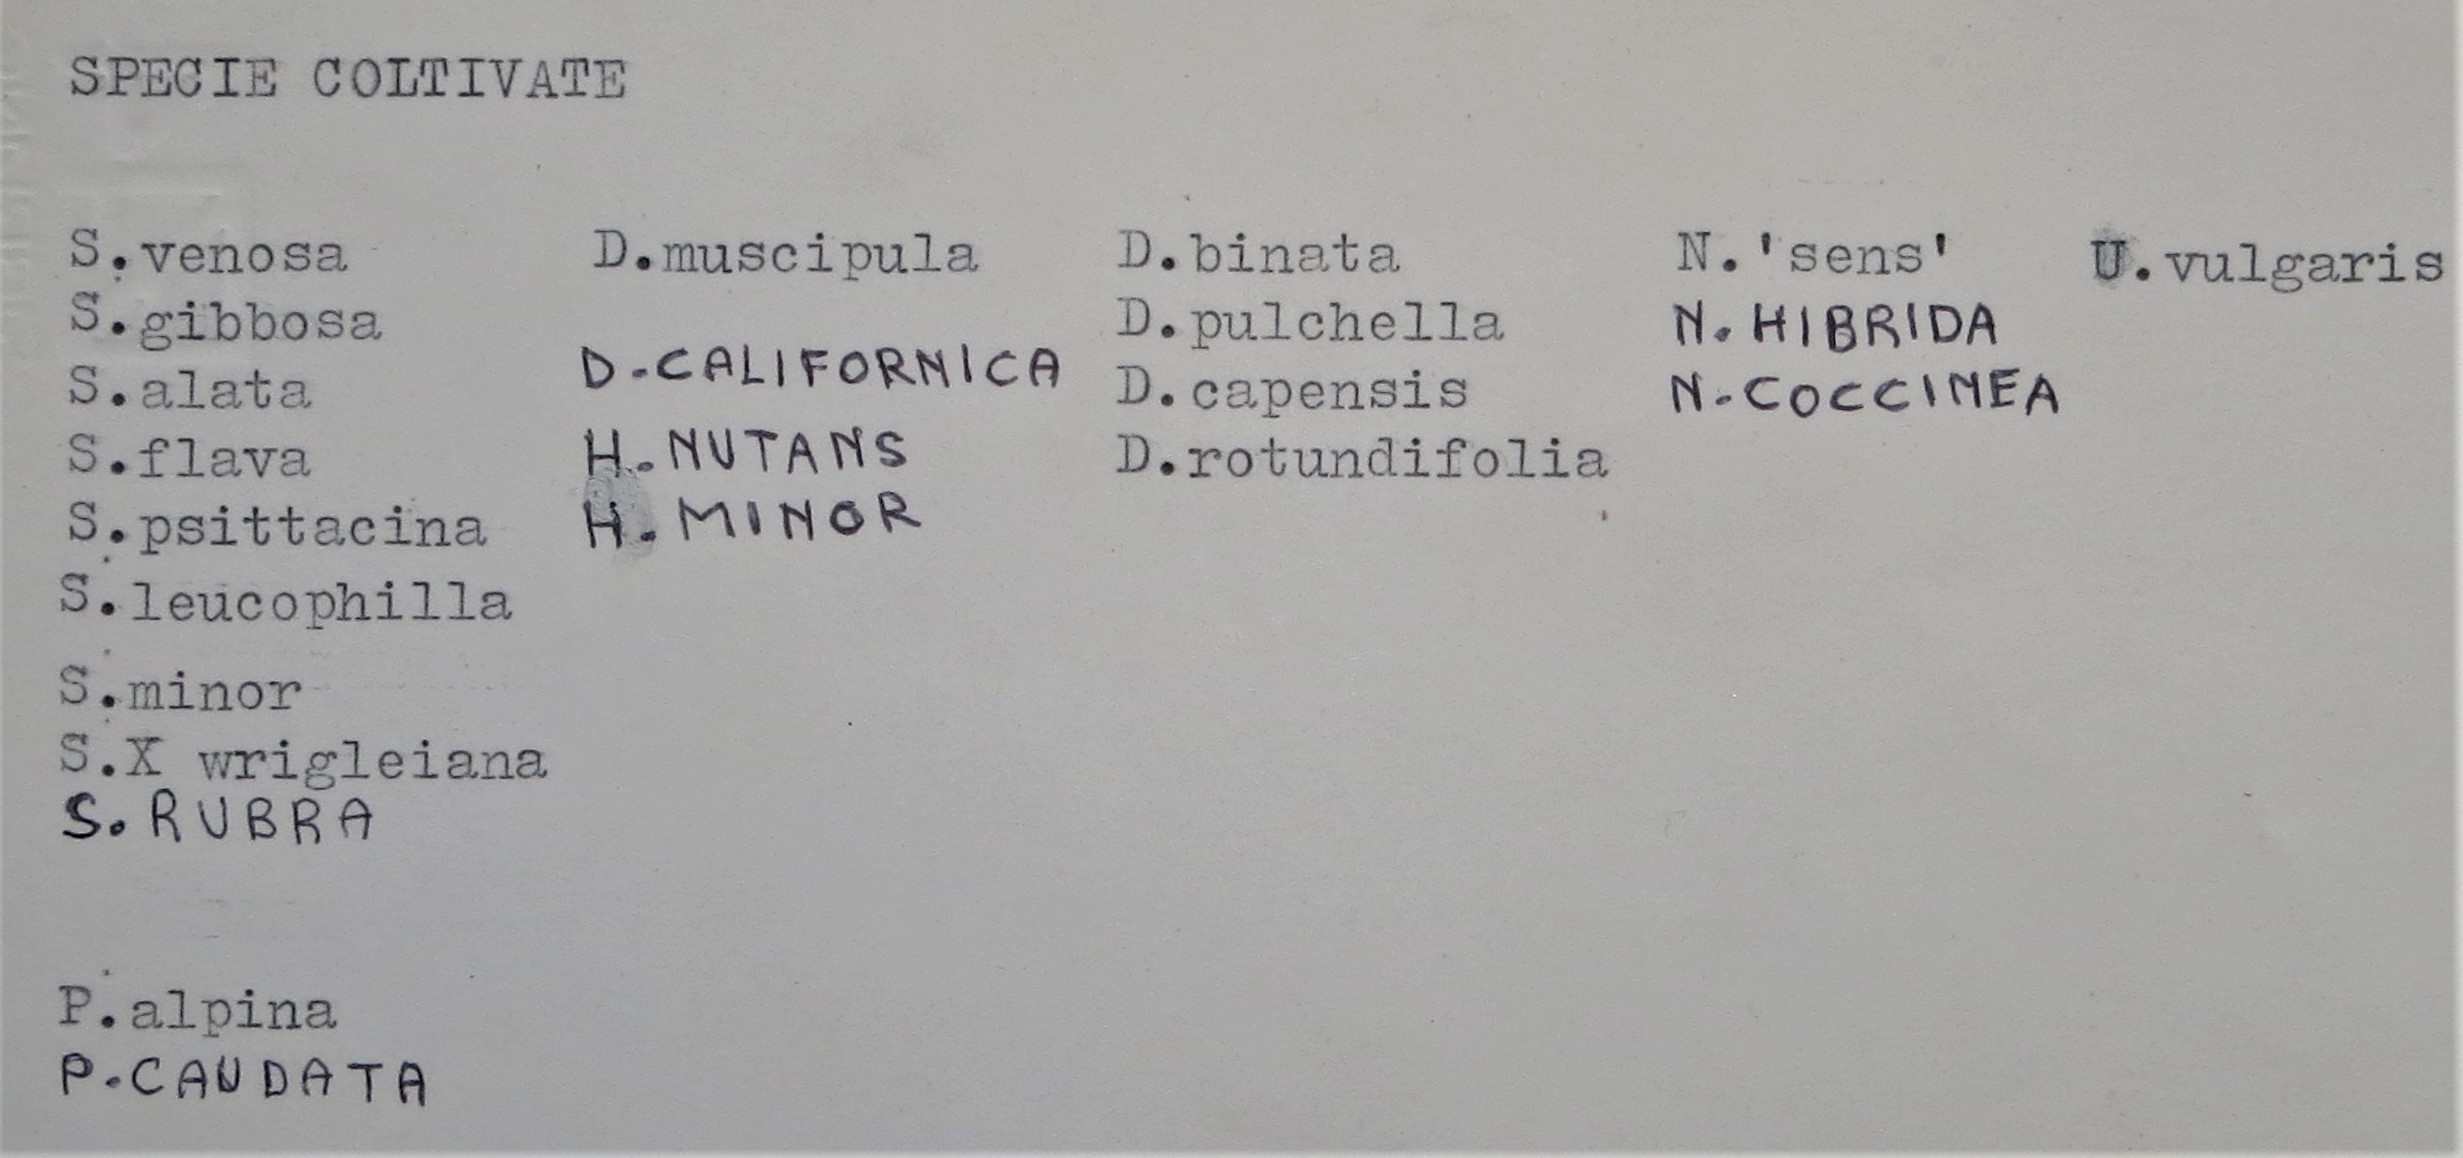 SPECIE COLTIVATE
S.venosa
S.gibbosa
S.alata
S.flava
S.psittacina
S.leucophilla
S.minor
S.X wrigleiana
S. RUBRA
P.alpina
P. CAUDATA
D.muscipula
D. CALIFORNICA
H. NUTANS
H. MINOR
D.binata
D.pulchella
D.capensis
D.rotundifolia
N.'sens'
N. HIBRIDA
N. COCCINEA
U.vulgaris